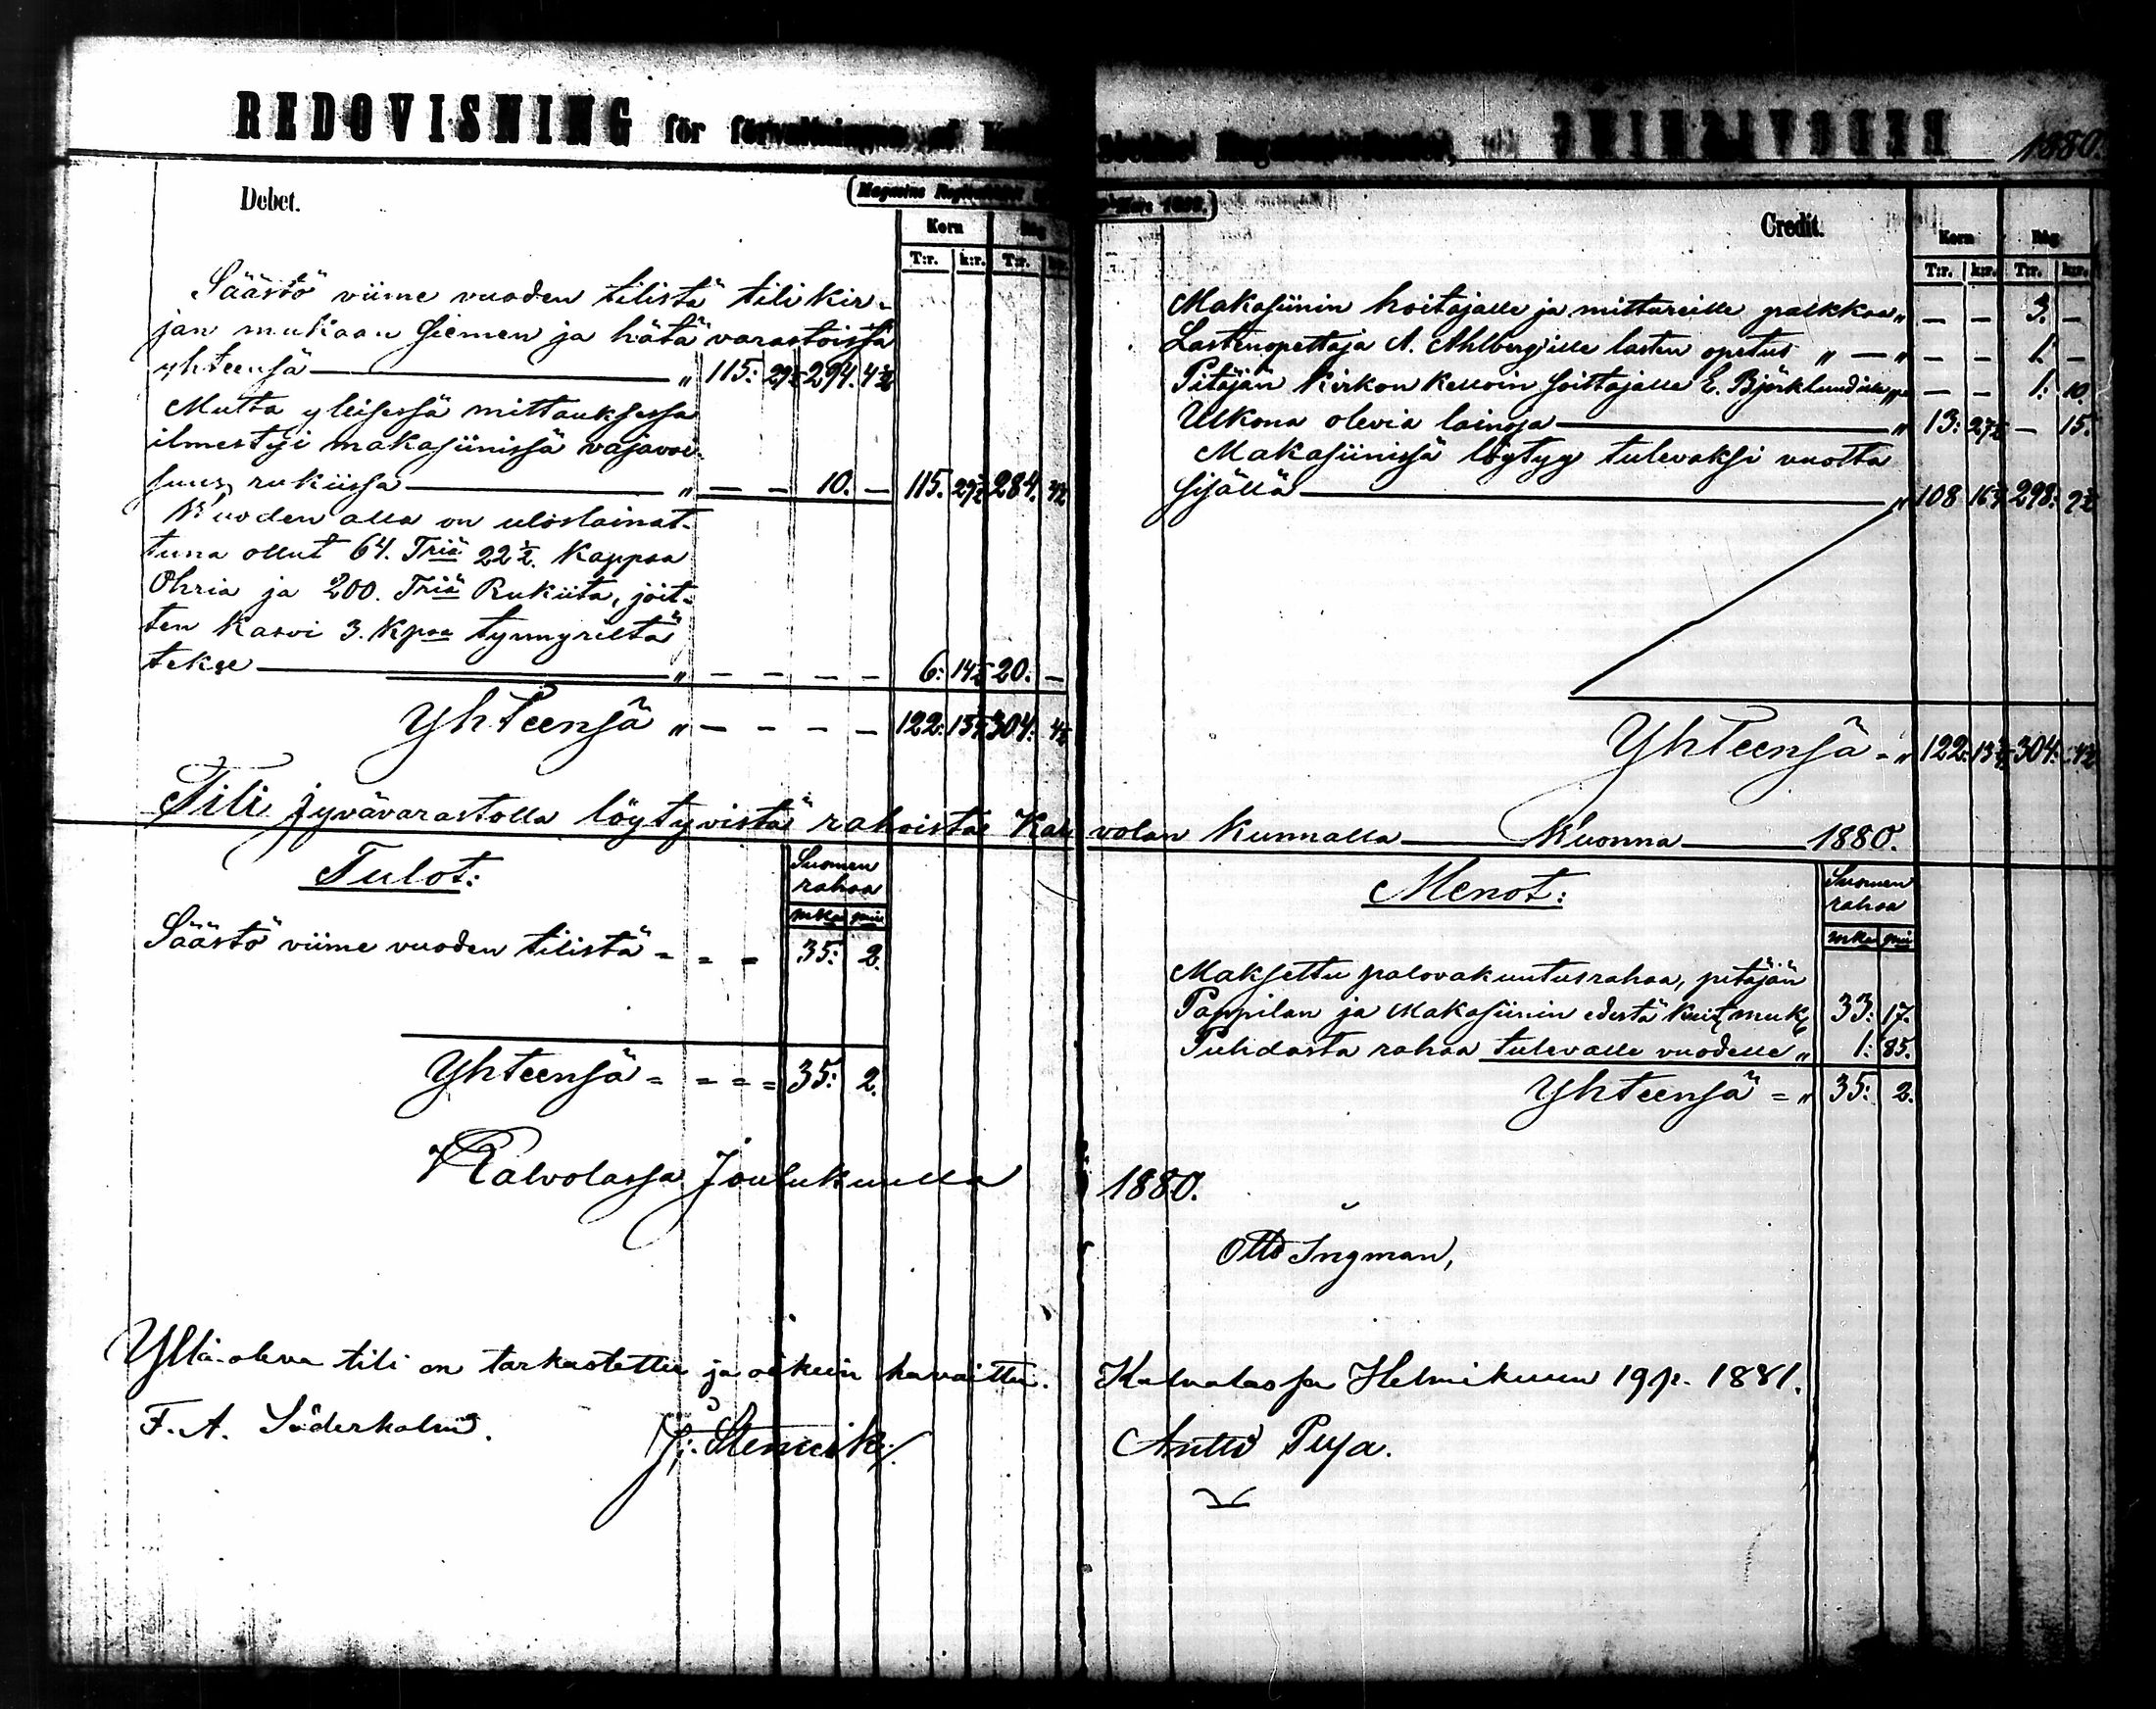 REDOVISNING för förvaltningen af
Magasins fonder,
1880.
Debet.
Korn Råg
T:r. k:r. T:r.
Säästö viime vuoden tilistä tilikir-
jan mukaan Siemen ja hätä varastoissa
yhteensä „ 115: 29½ 294. 4½
Mutta yleisessä mittauksessa
ilmestyi makasiinissä vajavai-
suus, rukiissa „ — — 10. — 115. 29½ 284. 4½
Vuoden alla on uloslainat-
tuna ollut 64. Triä 22½. Kappaa
Ohria ja 200. Triä Rukiita, joit-
ten Kasvi 3. Kpaa tynnyriltä
tekee „ — — — — 6: 14½ 20. —
Yhteensä „ — — — — 122: 13½ 304: 4½
Credit.
Korn Råg
T:r. k:r. T:r. k:r.
Makasiinin hoitajalle ja mittareille palkkaa „ — — 3. —
Lastenopettaja A. Ahlberg'ille lasten opetus „ — „ — — 1. —
Pitäjän Kirkon Kelloin Soittajalle E. Björklundille — — 1: 10.
Ulkona olevia lainoja „ 13: 27½ — 15.
Makasiinissä löytyy tulevaksi vuotta
Sisällä „ 108 16½ 298. 9½
Yhteensä - „ 122: 13½ 304: 4½
Tili Jyvävarastolla löytyvistä rahoista Kalvolan Kunnalla Vuonna 1880.
Tulot:
Suomen
rahaa
mka pniä
Säästö viime vuoden tilistä = = = 35: 2.
Yhteensä = = = = 35: 2.
Menot:
Suomen
rahaa
mka pniä
Maksettu palovakuutusrahaa, pitäjän
Pappilan ja Makasiinin edestä Kuit. muk. 33: 17.
Puhdasta rahaa tulevalle vuodelle „ 1: 85.
Yhteensä = „ 35: 2.
Kalvolassa Joulukuulla 1880.
Otto Ingman,
Yllä-oleva tili on tarkastettu ja oikein havaittu. Kalvolassa Helmikuun 19 p. 1881.
F. A. Söderholm. Antti Puja.